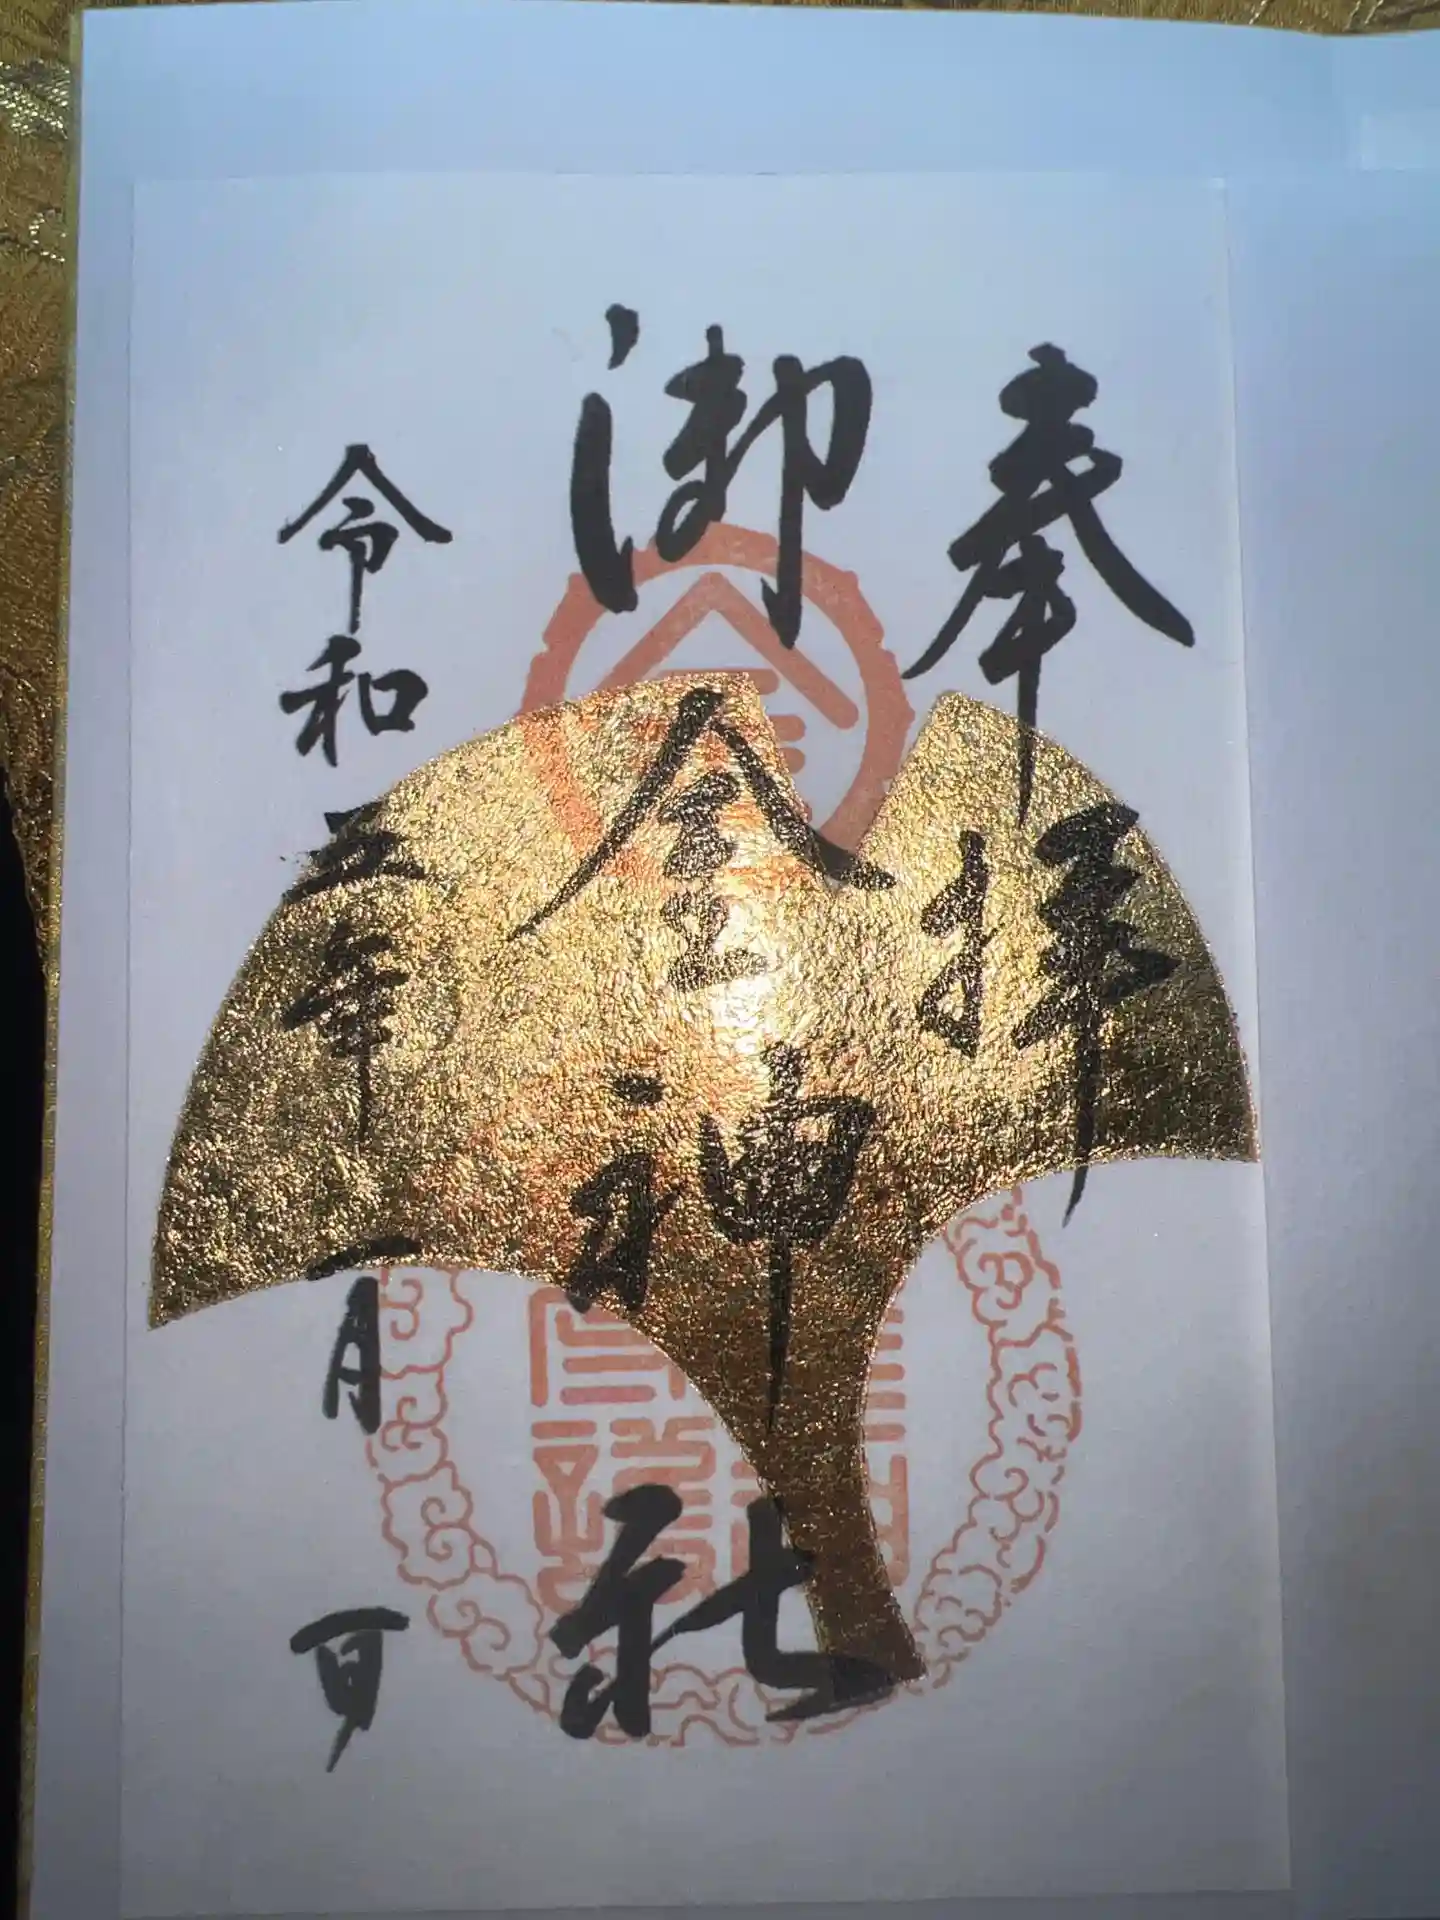 奉拝
御金神社
令和五年一月一日
金